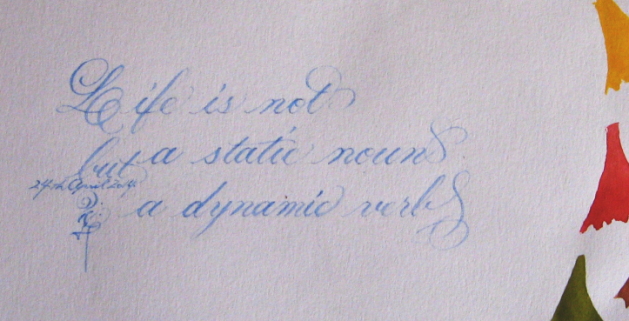 Life is not
a static noun
but
24th April
a dynamic verb